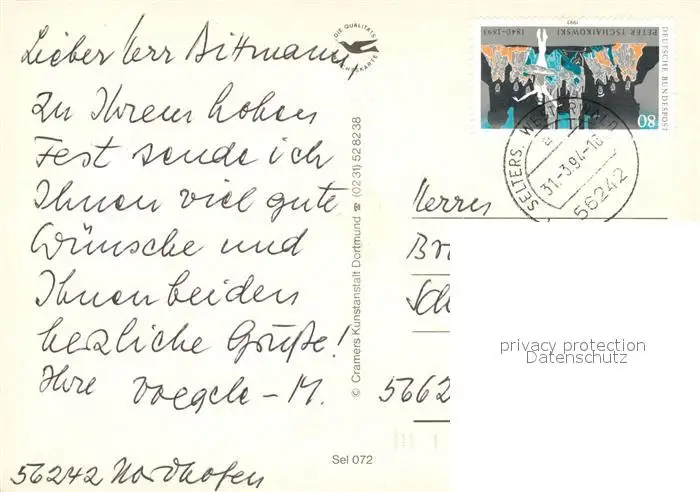 Lieber Herr Bittmann,
zu Ihrem hohen
Fest sende ich
Ihnen viel gute
Wünsche und
Ihnen beiden
herzliche Grüße!
Ihre Voegele-M.
56242 Nordhofen
DIE QUALITÄTS
© Cramers Kunstanstalt Dortmund ☎ (0231) 528238
Sel 072
1993
PETER TSCHAIKOWSKI
1840-1893
DEUTSCHE BUNDESPOST
80
SELTERS, WESTERWALD
31.-3.94-16
56242
Herrn
5662
privacy protection
Datenschutz